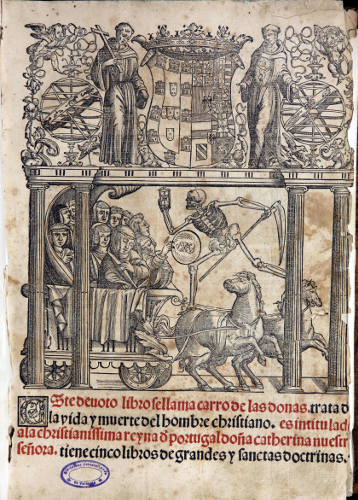 Este deuoto libro se llama carro de las donas. trata d
la vida y muerte del hombre christiano. es intitulad
a la christianissima reyna d portugal doña catherina nuestr
señora. tiene cinco libros de grandes y sanctas doctrinas.